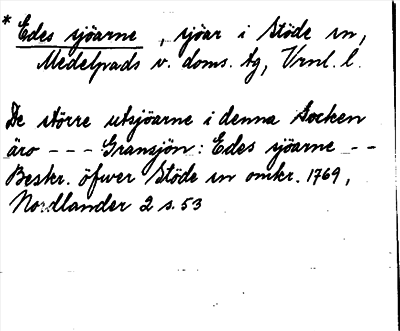 * Edes sjöarne, sjöar i Stöde sn,
Medelpads v. doms. tg, Vrnl. l.
De större utsjöarne i denna Socken
äro - - - Gransjön: Edes sjöarne - -
Beskr. öfwer Stöde sn omkr. 1769,
Nordlander 2 s. 53